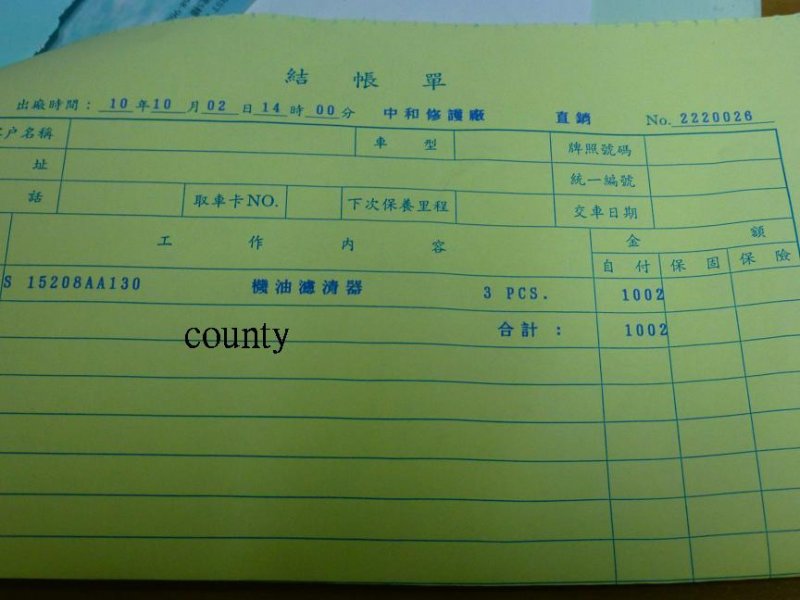 結帳單
出廠時間：10年10月02日14時00分 中和修護廠 直銷 No. 2220026
客戶名稱 車型 牌照號碼
址 統一編號
話 取車卡NO. 下次保養里程 交車日期
工作內容 金額
自付 保固 保險
S 15208AA130 機油濾清器 3 PCS. 1002
合計： 1002
county